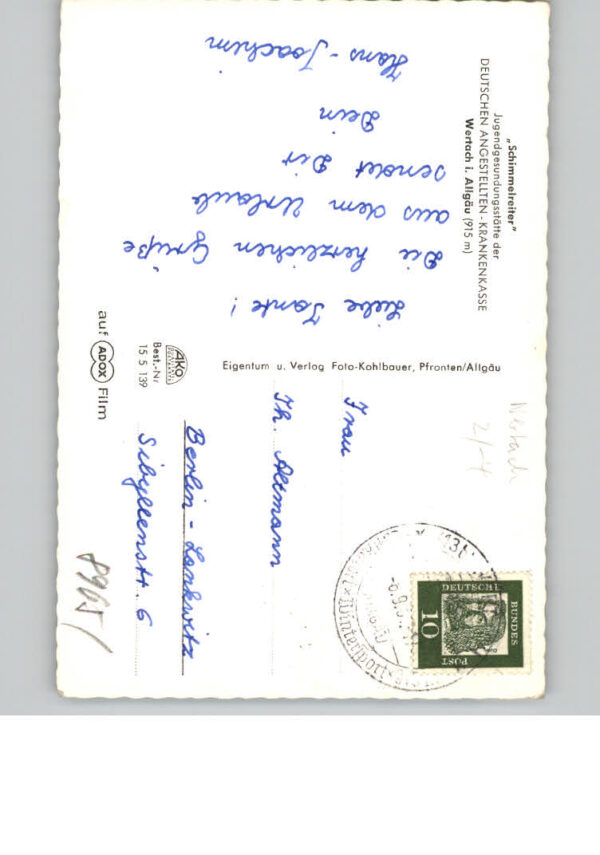 „Schimmelreiter"
Jugendgesundungsstätte der
DEUTSCHEN ANGESTELLTEN-KRANKENKASSE
Wertach i. Allgäu (915 m)
Liebe Tante!
Die herzlichen Grüße
aus dem Urlaub
sendet Dir
Dein
Hans-Joachim
Eigentum u. Verlag Foto-Kohlbauer, Pfronten/Allgäu
AKO
Best.-Nr
15 5 139
auf ADOX Film
Frau
Th. Altmann
Berlin-Lankwitz
Sibyllenstr. 6
Wertach
2/-4
8965/
DEUTSCHE
BUNDES
POST
10
Wintersport